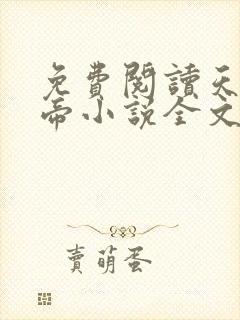 免費閱讀天
帝小說全文
賣萌蛋